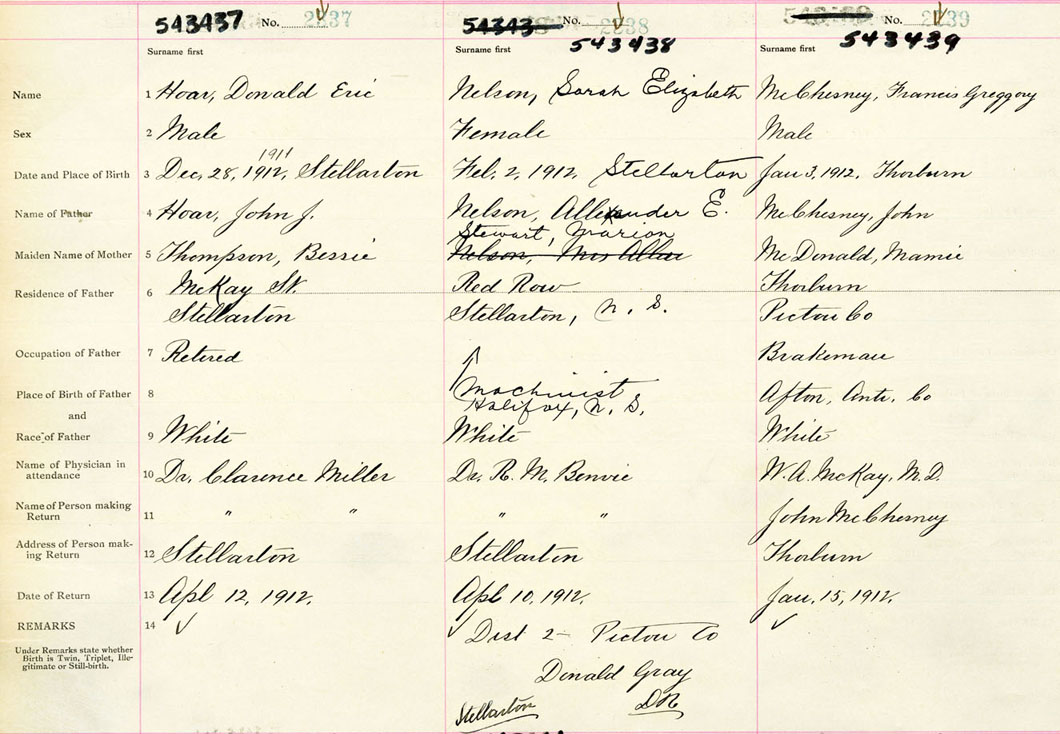 543437 No. 2237 54343 No. 2238 No. 2239
543438 543439
Surname first Surname first Surname first
Name 1 Hoar, Donald Eric Nelson, Sarah Elizabeth McChesney, Francis Greggory
Sex 2 Male Female Male
1911
Date and Place of Birth 3 Dec, 28, 1912, Stellarton Feb. 2, 1912, Stellarton Jan 3, 1912, Thorburn
Name of Father 4 Hoar, John J. Nelson, Allexander E. McChesney, John
Stewart, Marion
Maiden Name of Mother 5 Thompson, Bessie Nelson, Mrs McDonald, Mamie
McKay St. Red Row Thorburn
Residence of Father 6 Stellarton Stellarton, N. S. Pictou Co
Occupation of Father 7 Retired Brakeman
Machinist
Place of Birth of Father 8 Halifax, N. S. Afton, Ant. Co
and
Race of Father 9 White White White
Name of Physician in
attendance 10 Dr. Clarence Miller Dr. R. M. Benvie W. A. McKay, M. D.
Name of Person making
Return 11 " " " " John McChesney
Address of Person mak-
ing Return 12 Stellarton Stellarton Thorburn
Date of Return 13 Apl 12, 1912. Apl 10, 1912. Jan, 15, 1912.
REMARKS 14 Dist 2- Pictou Co
Under Remarks state whether
Birth is Twin, Triplet, Ille-
gitimate or Still-birth.
Donald Gray
Stellarton DR